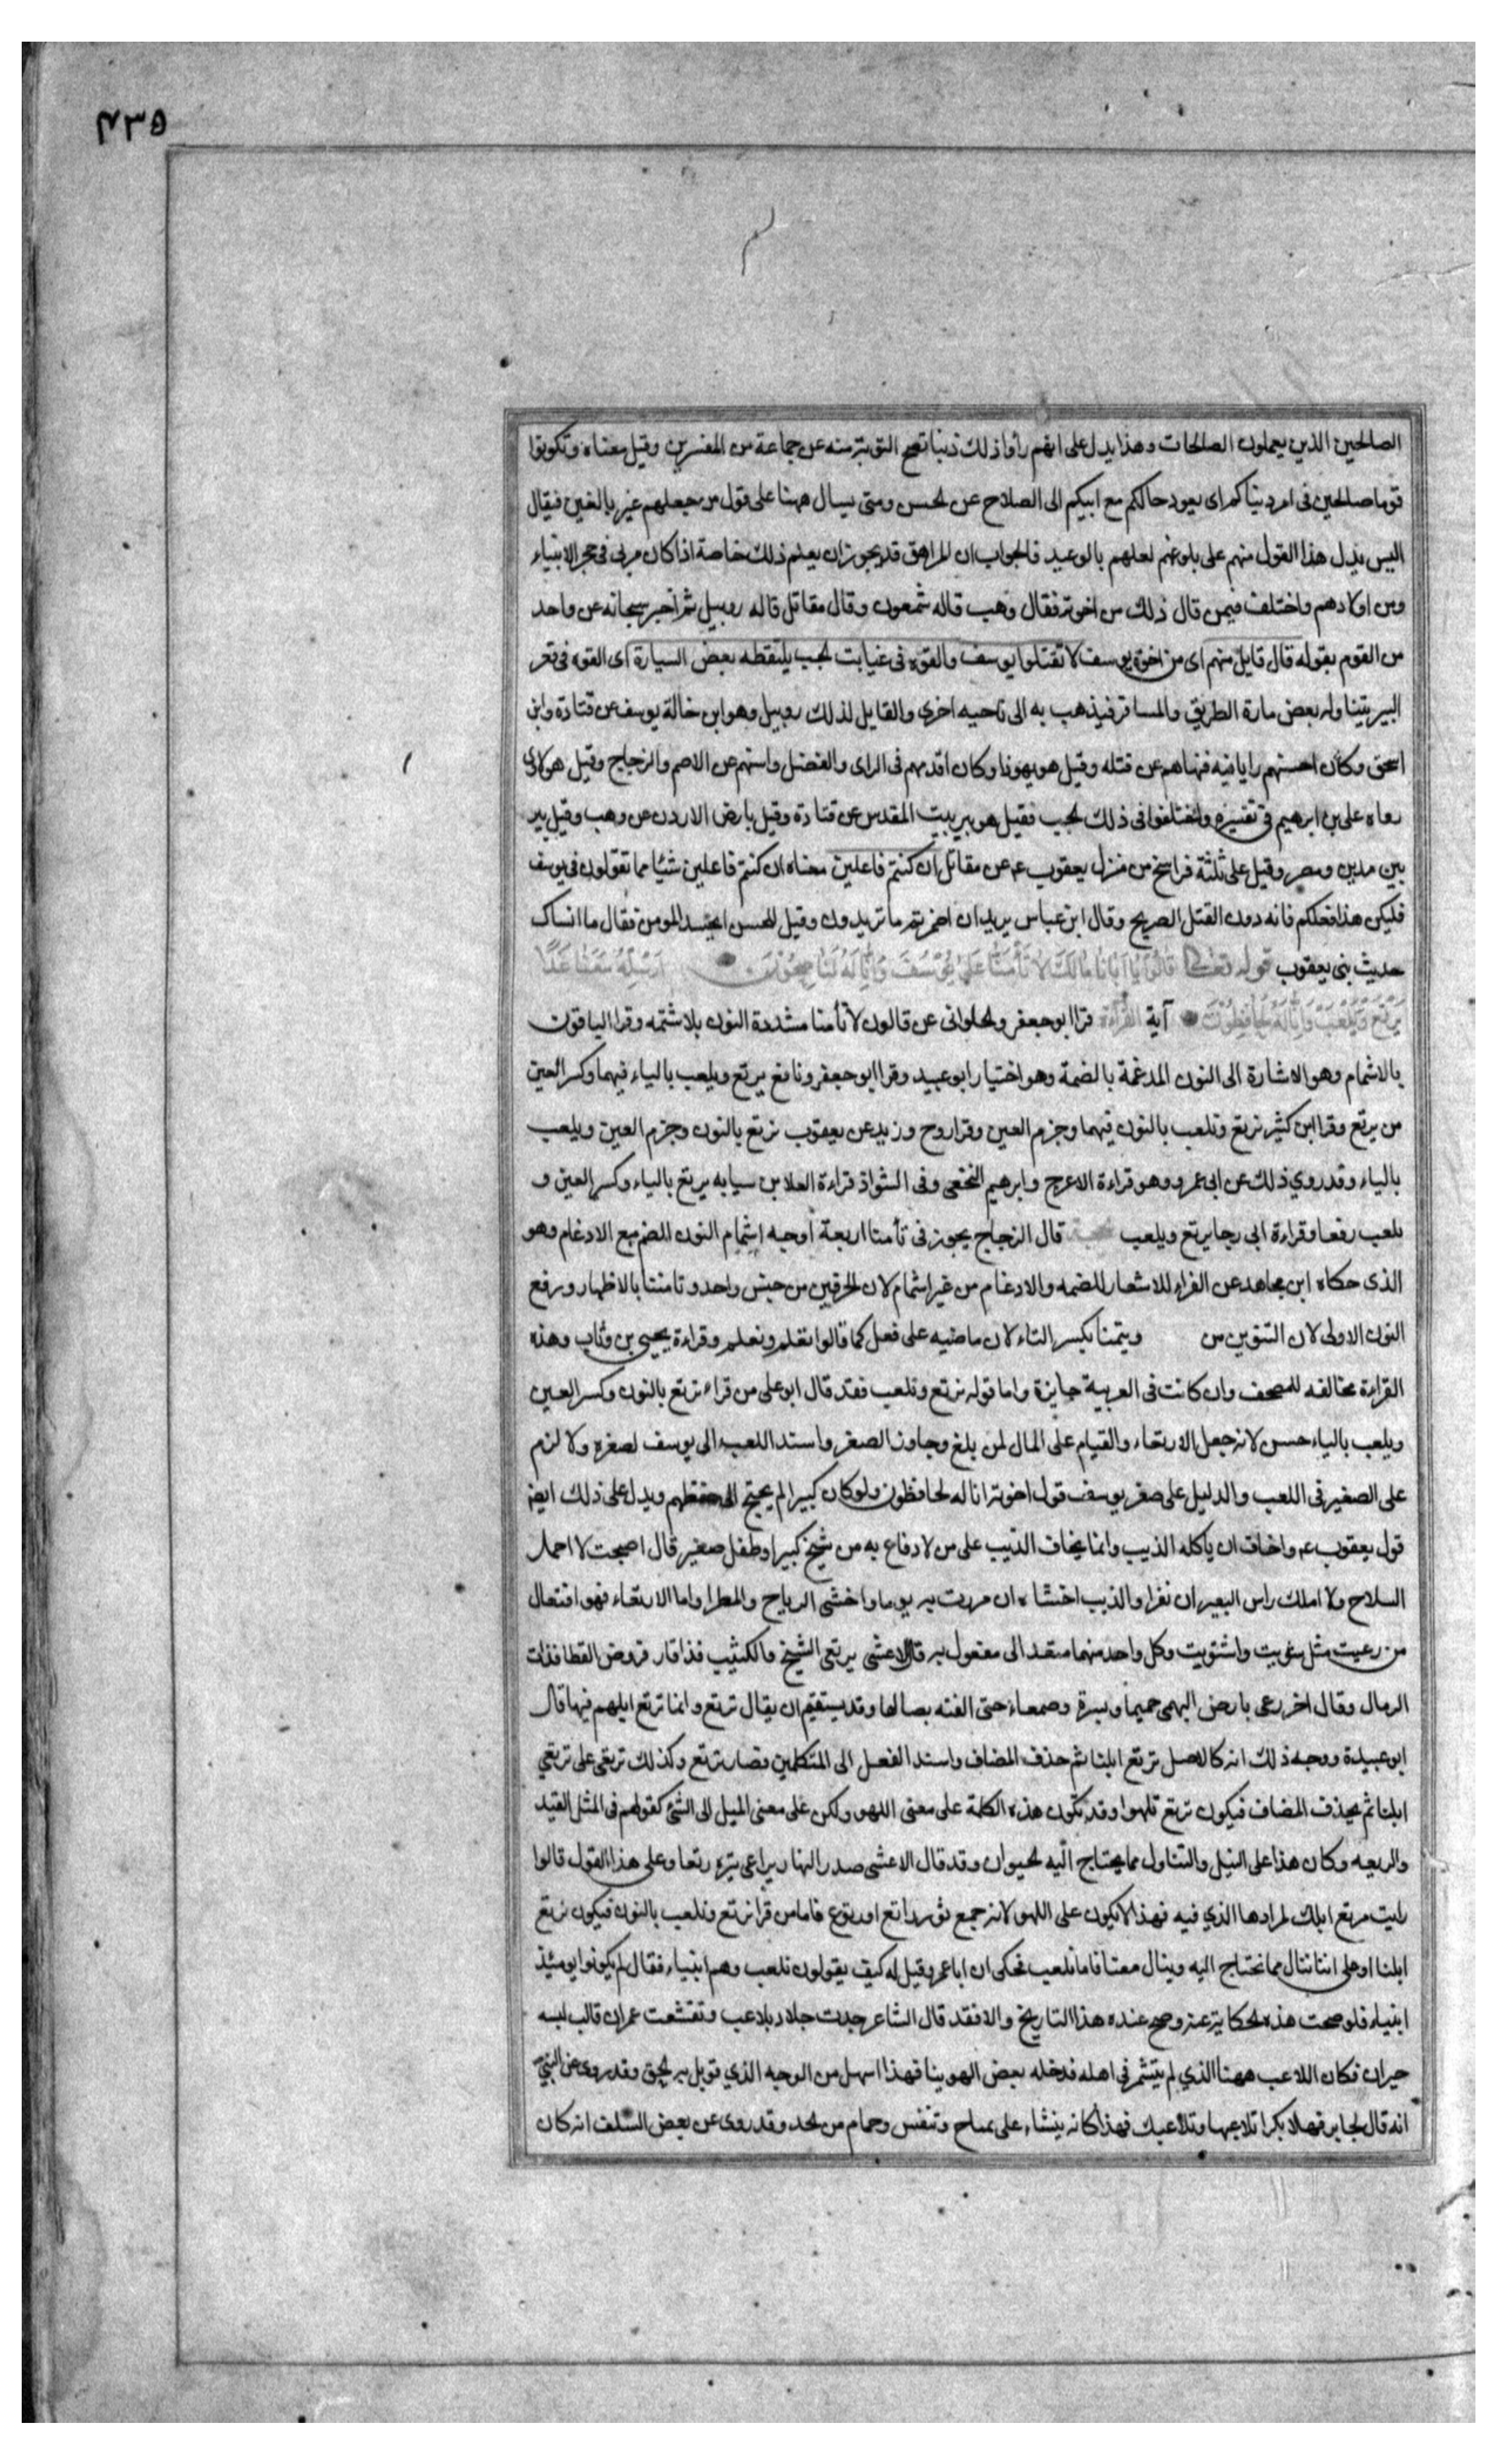 ۴۳۵
الصالحين الذين يعملون الصالحات وهذا يدل على انهم رأوا ذلك ذنبا تصح التوبة منه عن جماعة من المفسرين وقيل معناه وتكونوا
قوما صالحين فى امر دنياكم اى يعود حالكم مع ابيكم الى الصلاح عن الحسن ومتى يسال ههنا على قول من جعلهم غير بالغين فيقال
اليس يدل هذا القول منهم على بلوغهم لعلهم بالوعيد فالجواب ان المراهق قد يجوز ان يعلم ذلك خاصة اذا كان مربى فى حجر الانبياء
ومن اولادهم واختلف فيمن قال ذلك من اخوته فقال وهب قاله شمعون وقال مقاتل قاله روبيل ثم اخبر سبحانه عن واحد
من القوم بقوله قال قايل منهم اى من اخوة يوسف لا تقتلوا يوسف والقوه فى غيابت الجب يلتقطه بعض السيارة اى القوه فى قعر
البير يتناوله بعض مارة الطريق والمسافر فيذهب به الى ناحيه اخرى والقايل لذلك روبيل وهو ابن خالة يوسف عن قتادة وابن
اسحق وكان احسنهم رايا فيه فنهاهم عن قتله وقيل هو يهودا وكان اقدمهم فى الراى والفضل واسنهم عن الاصم والزجاج وقيل هو لاوى
رواه على بن ابرهيم فى تفسيره واختلفوا فى ذلك الجب فقيل هو بير ببيت المقدس عن قتادة وقيل بارض الاردن عن وهب وقيل بير
بين مدين ومصر وقيل على ثلثة فراسخ من منزل يعقوب عم عن مقاتل ان كنتم فاعلين معناه ان كنتم فاعلين شئيا مما تقولون فى يوسف
فليكن هذا فعلكم فانه دون القتل الصريح وقال ابن عباس يريد ان اضمرتم ما تريدون وقيل للحسن ايحسد المومن فقال ما انساك
حديث بنى يعقوب قوله تعالى قالوا يا ابانا مالك لا تأمنا على يوسف وانا له لناصحون ارسله معنا غدا
يرتع ويلعب وانا له لحافظون آية القراءة قرا ابو جعفر والحلوانى عن قالون لا تأمنا مشددة النون بلا شتمه وقرا الباقون
بالاشمام وهو الاشارة الى النون المدغمة بالضمة وهو اختيار ابو عبيد وقرا ابو جعفر ونافع يرتع ويلعب بالياء فيهما وكسر العين
من يرتع وقرا ابن كثير نرتع ونلعب بالنون فيهما وجزم العين وقرا روح وزيد عن يعقوب نرتع بالنون وجزم العين ويلعب
بالياء وقد روي ذلك عن ابى عمرو وهو قراءة الاعرج وابرهيم النخعى وفى الشواذ قراءة العلا بن سيابه يرتع بالياء وكسر العين و
يلعب رفعا وقراءة ابى رجا يرتع ويلعب قال الزجاج يجوز فى تأمنا اربعة اوجه اشمام النون الضم مع الادغام وهو
الذى حكاه ابن مجاهد عن الفراء للاشعار للضمه والادغام من غير اشمام لان الحرفين من جنس واحد وتامننا بالاظهار ورفع
النون الاولى لان التنوين من وتيمنا بكسر التاء لان ماضيه على فعل كما قالوا تعلم ونعلم وقراءة يحيى بن وثاب وهذه
القراءة مخالفه للمصحف وان كانت فى العربية جايزة واما قوله نرتع ونلعب فقد قال ابو على من قراء نرتع بالنون وكسر العين
ويلعب بالياء حسن لانه جعل الارتعاء والقيام على المال لمن بلغ وجاوز الصغر واسند اللعب الى يوسف لصغره ولا لزم
على الصغير فى اللعب والدليل على صغر يوسف قول اخوته انا له لحافظون ولو كان كبيرا لم يحتج الى حفظهم ويدل على ذلك ايضا
قول يعقوب عم واخاف ان ياكله الذيب وانما يخاف الذيب على من لا دفاع به من شيخ كبير او طفل صغير قال اصبحت لا احمل
السلاح ولا املك راس البعير ان نفرا والذيب اخشاه ان مررت به يوما واخشى الرياح والمطرا واما الارتعاء فهو افتعال
من رعيت مثل شويت واشتويت وكل واحد منهما متعد الى مفعول به قال الاعشى يرتعى الشيخ فالكثيب فذاقار فروض القطا فذات
الرمال وقال اخر رعى بارض البهمى جميما وبسرة وصمعاء حتى انفته بصالها وقد يستقيم ان يقال نرتع وانما ترتع ابلهم فيها قال
ابو عبيدة ووجه ذلك انه كالاصل ترتع ابلنا ثم حذف المضاف واسند الفعل الى المتكلمين فصار نرتع وكذلك نرتعى على ترتعي
ابلنا ثم يحذف المضاف فيكون نرتع نلهوا وقد تكون هذه الكلمة على معنى اللهو ولكن على معنى الميل الى الشئ كقولهم فى المثل القيد
والرتعه وكان هذا على النيل والتناول مما يحتاج اليه الحيوان وقد قال الاعشى صدر النهار يراعى ثيره رتعا وعلى هذا القول قالوا
رايت مرتع ابلك لمرادها الذي فيه فهذا لا يكون على اللهو لانه جمع ثور راتع او رتوع فاما من قرا نرتع ونلعب بالنون فيكون نرتع
ابلنا او على اننا ننال مما نحتاج اليه وينال معنا فاما نلعب فحكى ان ابا عمرو قيل له كيف يقولون نلعب وهم انبياء فقال لم يكونوا يومئذ
انبياء فلو صحت هذه الحكاية عنه وصح عنده هذا التاريخ والا فقد قال الشاعر جدت جداد بلاعب وتقشعت عمران قالب لبسه
حيران فكان اللاعب ههنا الذي لم يتشمر فى اهله فدخله بعض الهوينا فهذا اسهل من الوجه الذي قوبل به الحق وقد روى عن النبي
انه قال لجابر فهلا بكرا تلاعبها وتلاعبك فهذا كانه ينشاء على مباح وتنفس وجمام من الجد وقد روى عن بعض السلف انه كان